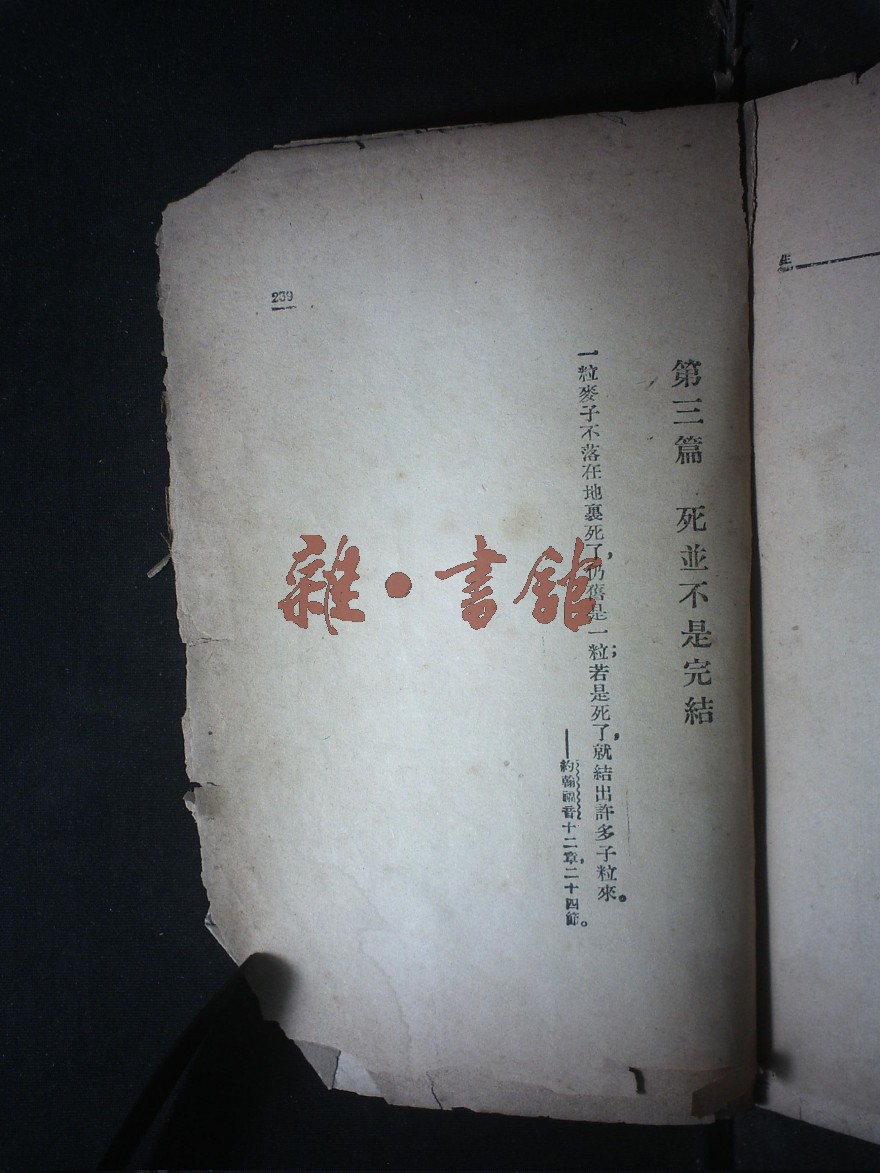 生
第三篇　死並不是完結
一粒麥子不落在地裏死了，仍舊是一粒；若是死了，就結出許多子粒來。
——約翰福音十二章，二十四節。
239
雜·書館